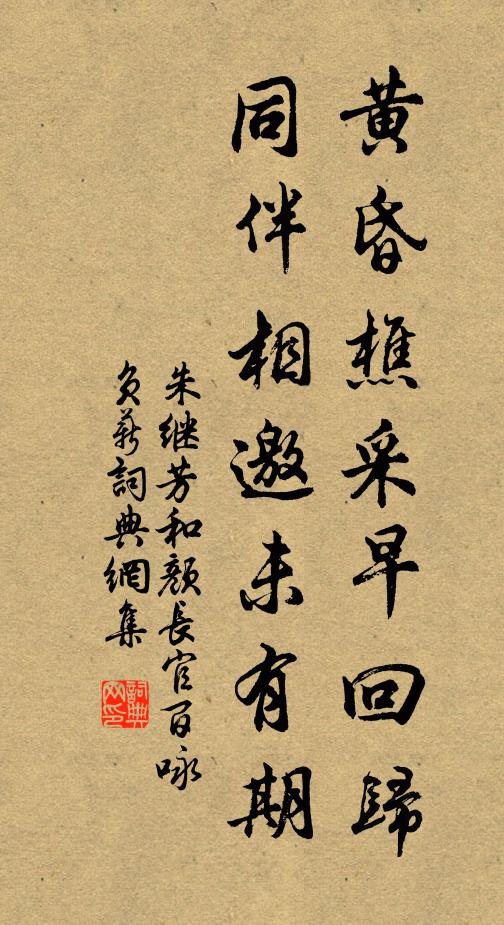 黄昏樵采早回歸
同伴相邀未有期
朱继芳和顏長官百咏
負薪詞典網集
詞典网印